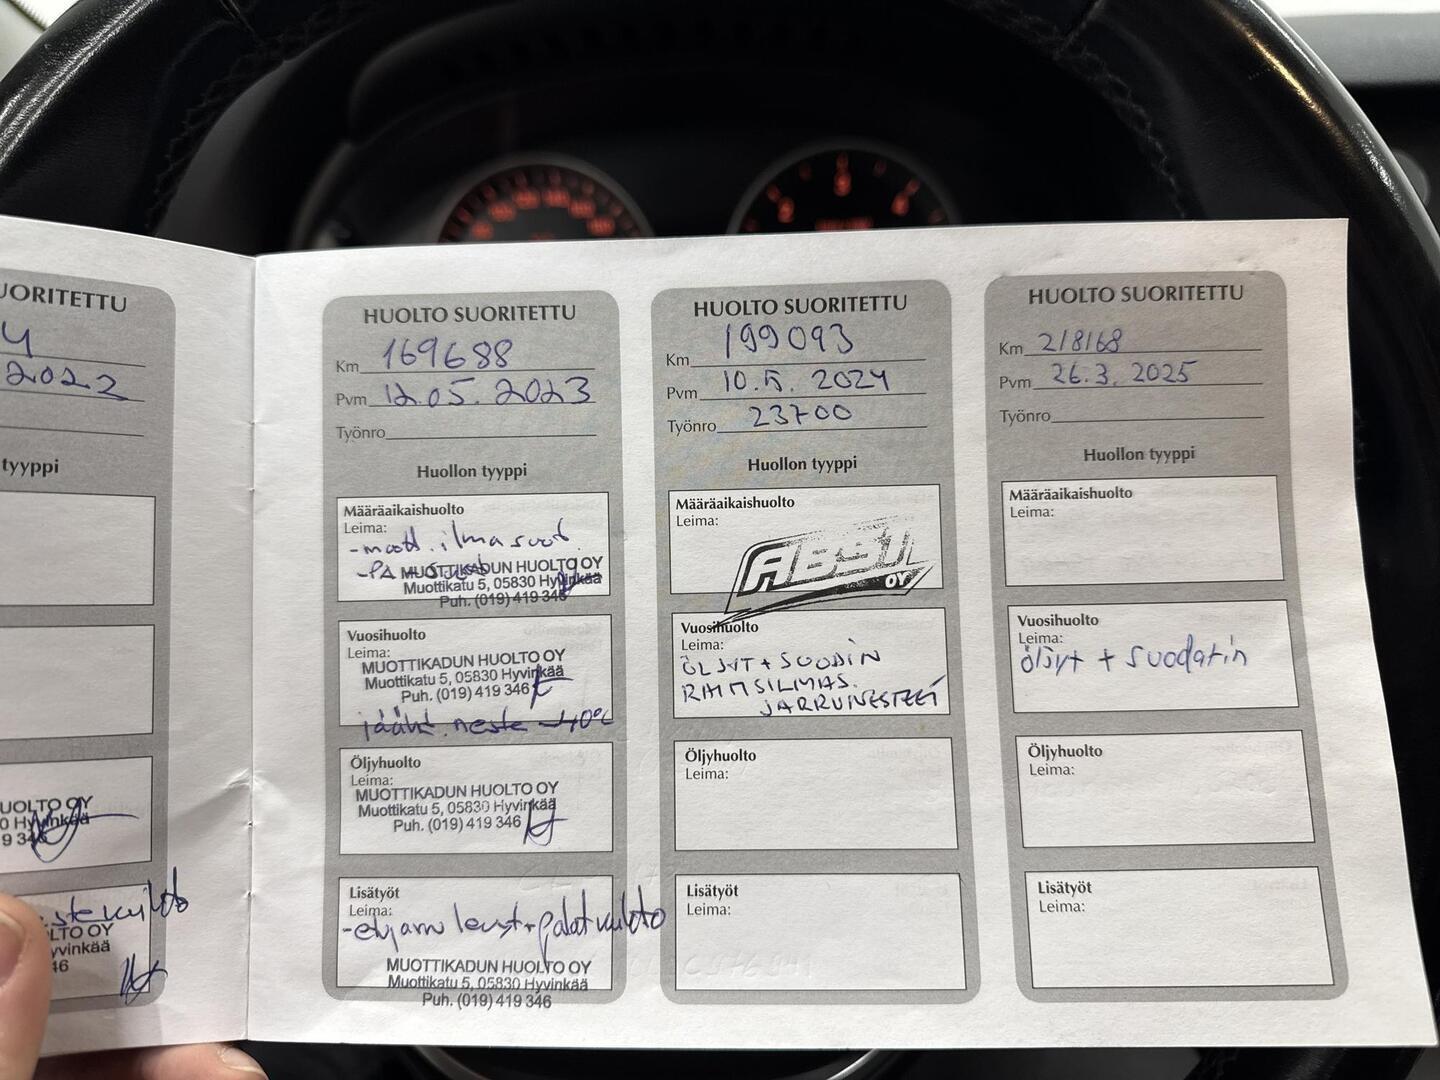 UORITETTU
4
2022
tyyppi
UOLTO OY
0 Hyvinkää
9 346
LTO OY
yvinkää
46
HUOLTO SUORITETTU
Km 169688
Pvm 12.05.2023
Työnro
Huollon tyyppi
Määräaikaishuolto
Leima:
-moott. ilmasuod.
MUOTTIKADUN HUOLTO OY
Muottikatu 5, 05830 Hyvinkää
Puh. (019) 419 346
Vuosihuolto
Leima:
MUOTTIKADUN HUOLTO OY
Muottikatu 5, 05830 Hyvinkää
Puh. (019) 419 346
jäähd. neste -40°C
Öljyhuolto
Leima:
MUOTTIKADUN HUOLTO OY
Muottikatu 5, 05830 Hyvinkää
Puh. (019) 419 346
Lisätyöt
Leima:
-etujarru levyt + palat vaihto
MUOTTIKADUN HUOLTO OY
Muottikatu 5, 05830 Hyvinkää
Puh. (019) 419 346
HUOLTO SUORITETTU
Km 199093
Pvm 10.5. 2024
Työnro 23700
Huollon tyyppi
Määräaikaishuolto
Leima:
OY
Vuosihuolto
Leima:
ÖLJYT + SUODIN
JARRUNESTEET
Öljyhuolto
Leima:
Lisätyöt
Leima:
HUOLTO SUORITETTU
Km 218168
Pvm 26.3. 2025
Työnro
Huollon tyyppi
Määräaikaishuolto
Leima:
Vuosihuolto
Leima:
öljyt + suodatin
Öljyhuolto
Leima:
Lisätyöt
Leima: